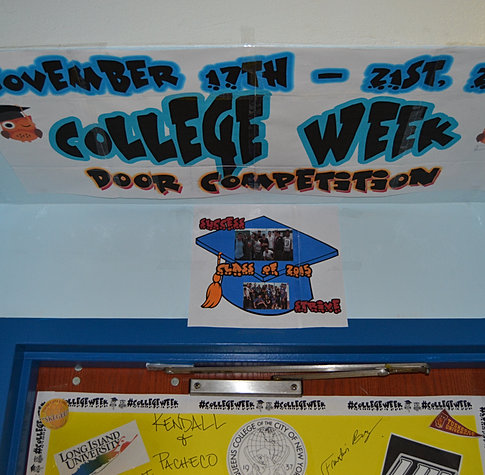 NOVEMBER 17TH - 21ST, 2
COLLEGE WEEK
DOOR COMPETITION
SUCCESS
CLASS OF 2015
STRIVE
#COLLEGEWEEK #COLLEGEWEEK #COLLEGEWEEK #COLLEGEWEEK #COLLEGEWEEK
KENDALL
&
PACHECO
LONG ISLAND
UNIVERSITY
QUEENS COLLEGE OF THE CITY OF NEW
1937